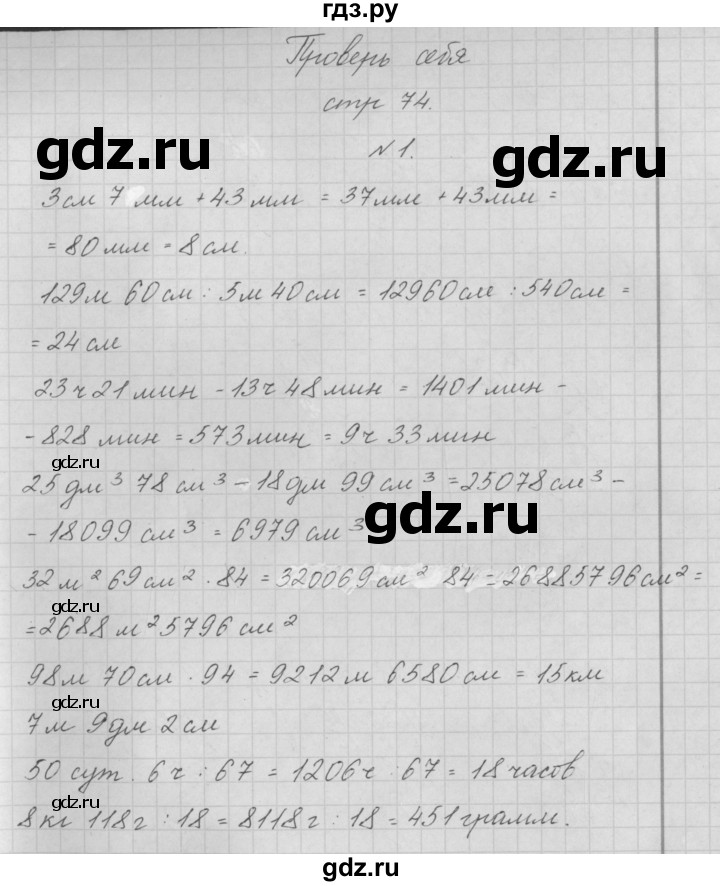 гдз.ру
Проверь себя
стр 74.
gdz.ru gdz.ru
№1.
3см 7мм + 43мм = 37мм + 43мм =
= 80мм = 8см.
gdz.ru
129м 60см : 5м 40см = 12960см : 540см =
= 24см
23ч 21мин - 13ч 48мин = 1401мин -
- 828мин = 573мин = 9ч 33мин
gdz.ru
25дм³ 78см³ - 18дм 99см³ = 25078см³ -
gdz.ru
- 18099см³ = 6979см³
32м² 69см² · 84 = 320069см² 84 = 26885796см² =
gdz.ru
= 2688м² 5796см²
98м 70см · 94 = 9212м 6580см = 15км
gdz.ru
7м 9дм 2см
50 сут. 6ч : 67 = 1206ч : 67 = 18 часов
8кг 118г : 18 = 8118г : 18 = 451грамм.
gdz.ru gdz.ru
гдз.ру